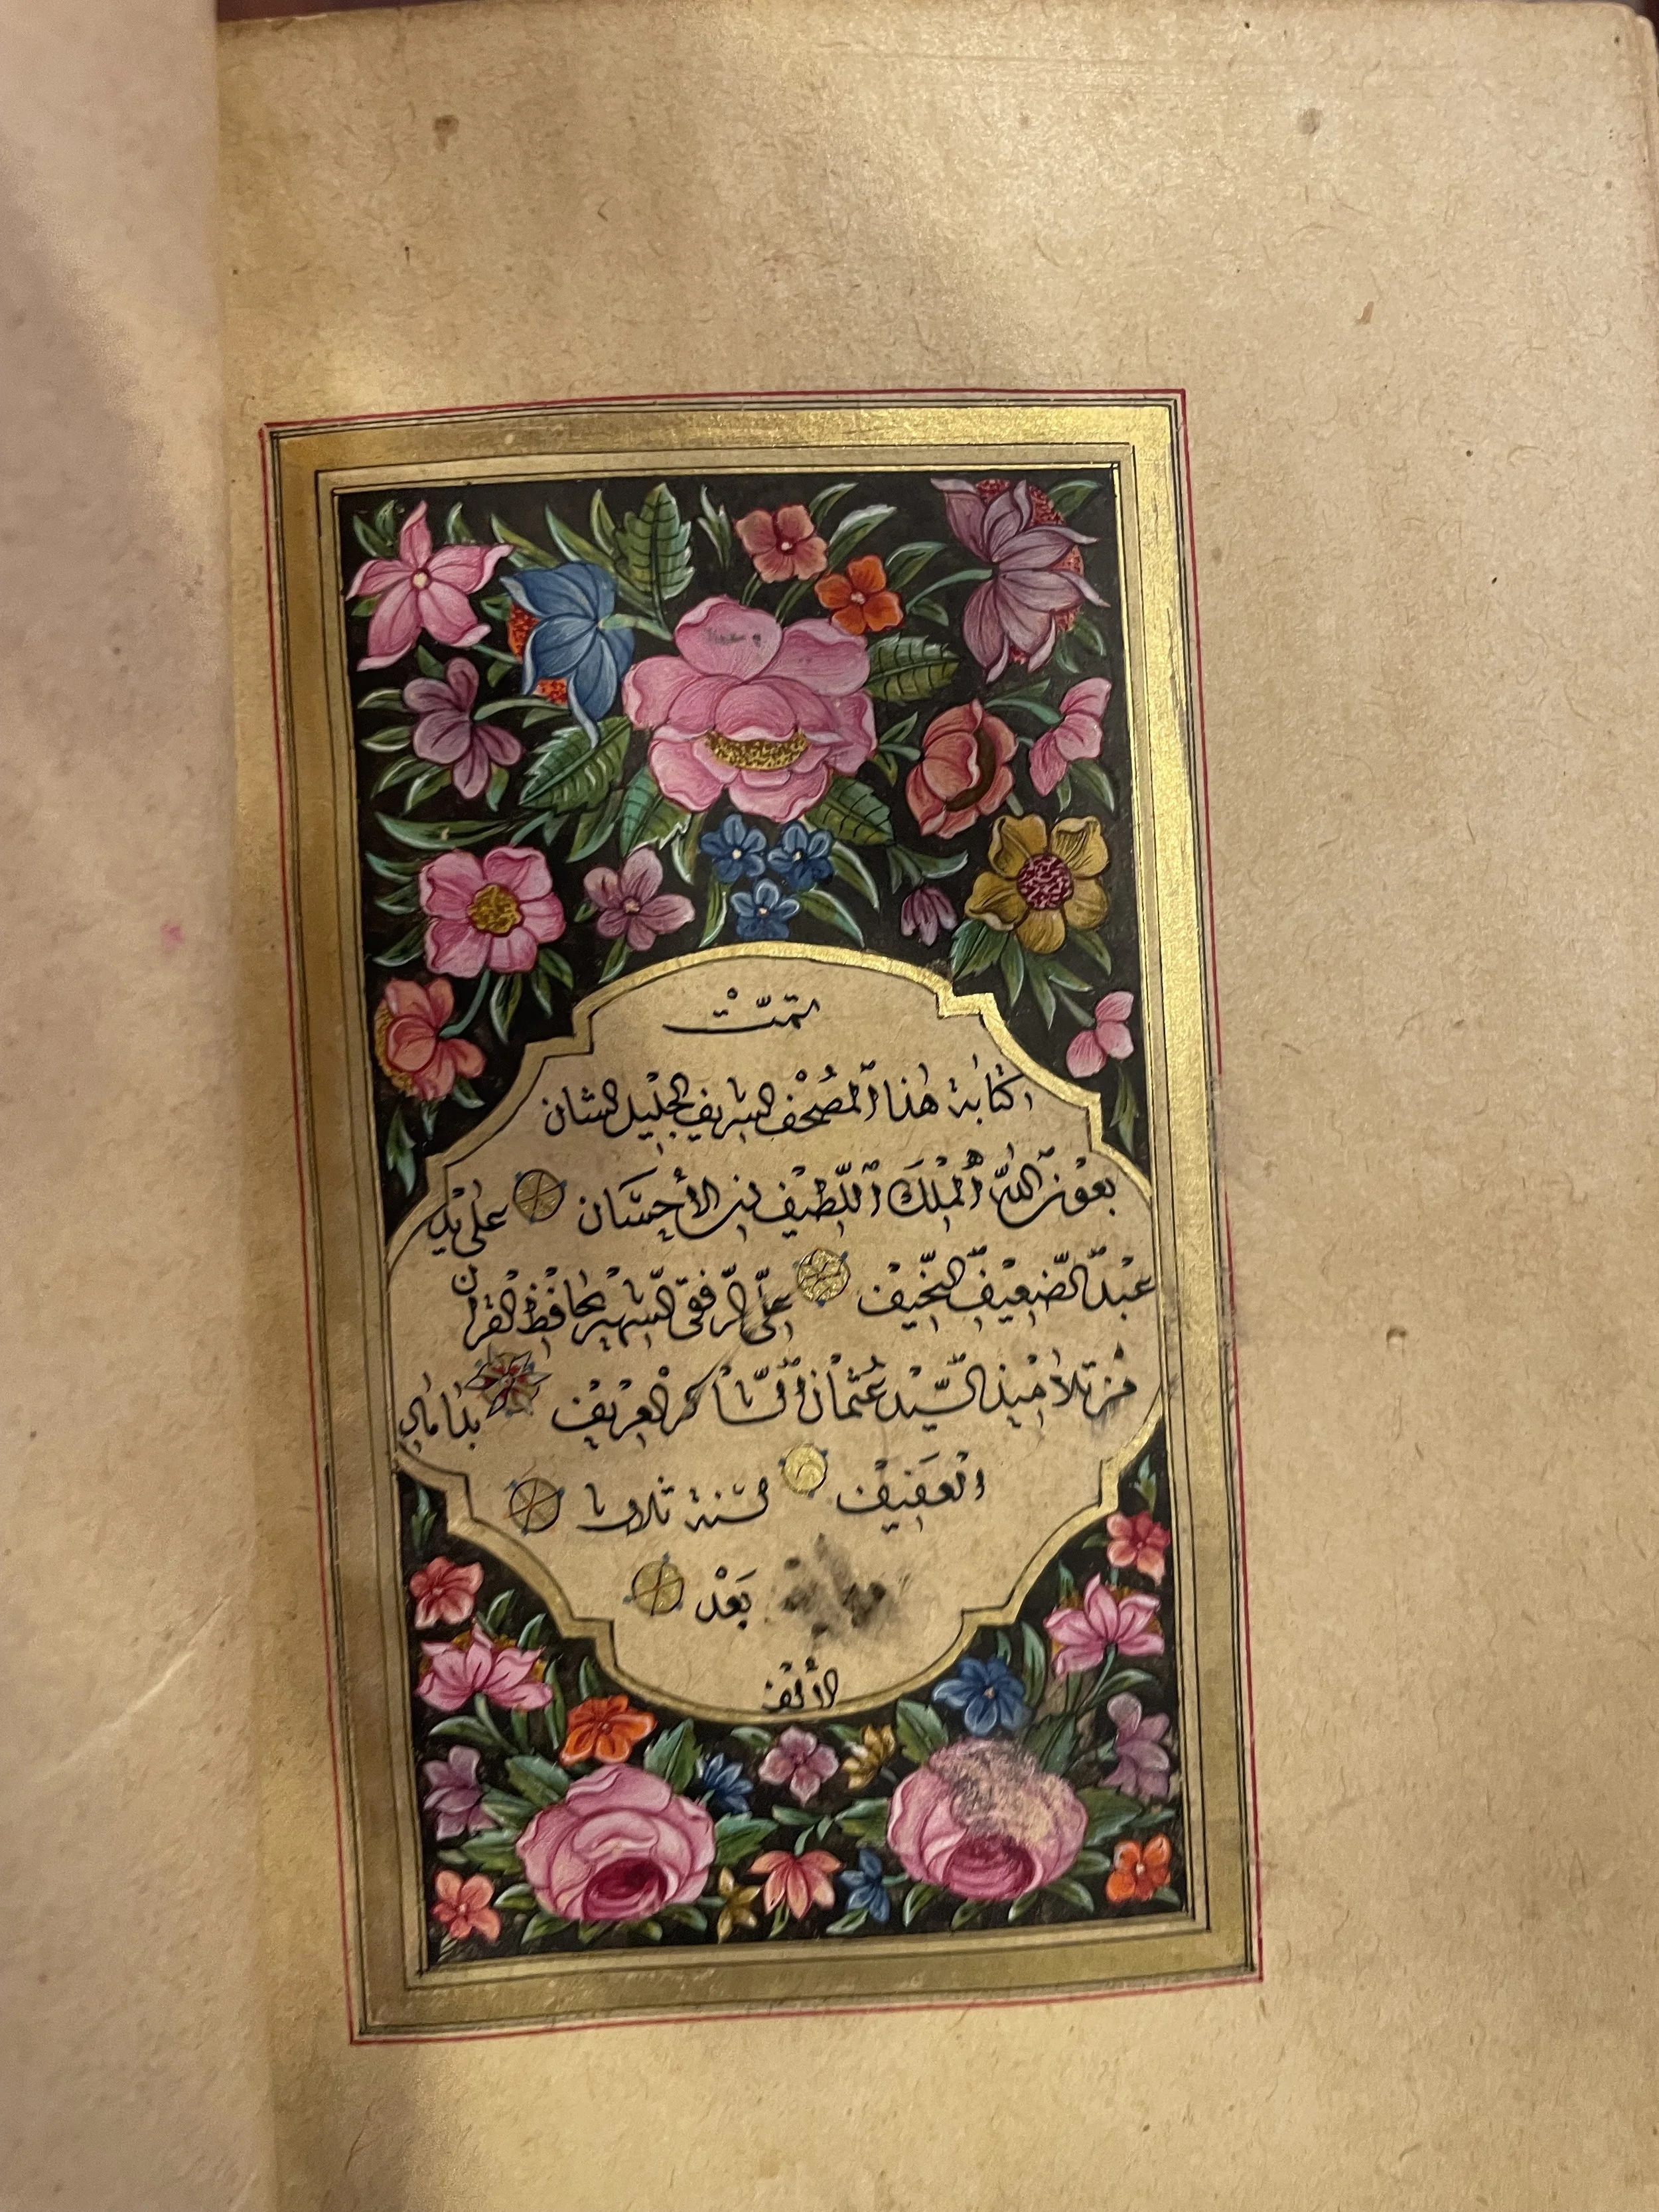 تمّتْ
كتابة هٰذا ٱلمصُحْف الشريف الجليل الشان
بعون اللّٰه ٱلملك ٱللّطيف ذى الأحسَان على يد
عبد الضّعيف النّحيف علىّ الرّفقى الشّهير بحافظ القرآن
من تلاميذ السّيّد عُثمان الشّاكر العريف بداماد
العفيف لسنة ثلاث
بَعْد
الأَلْف